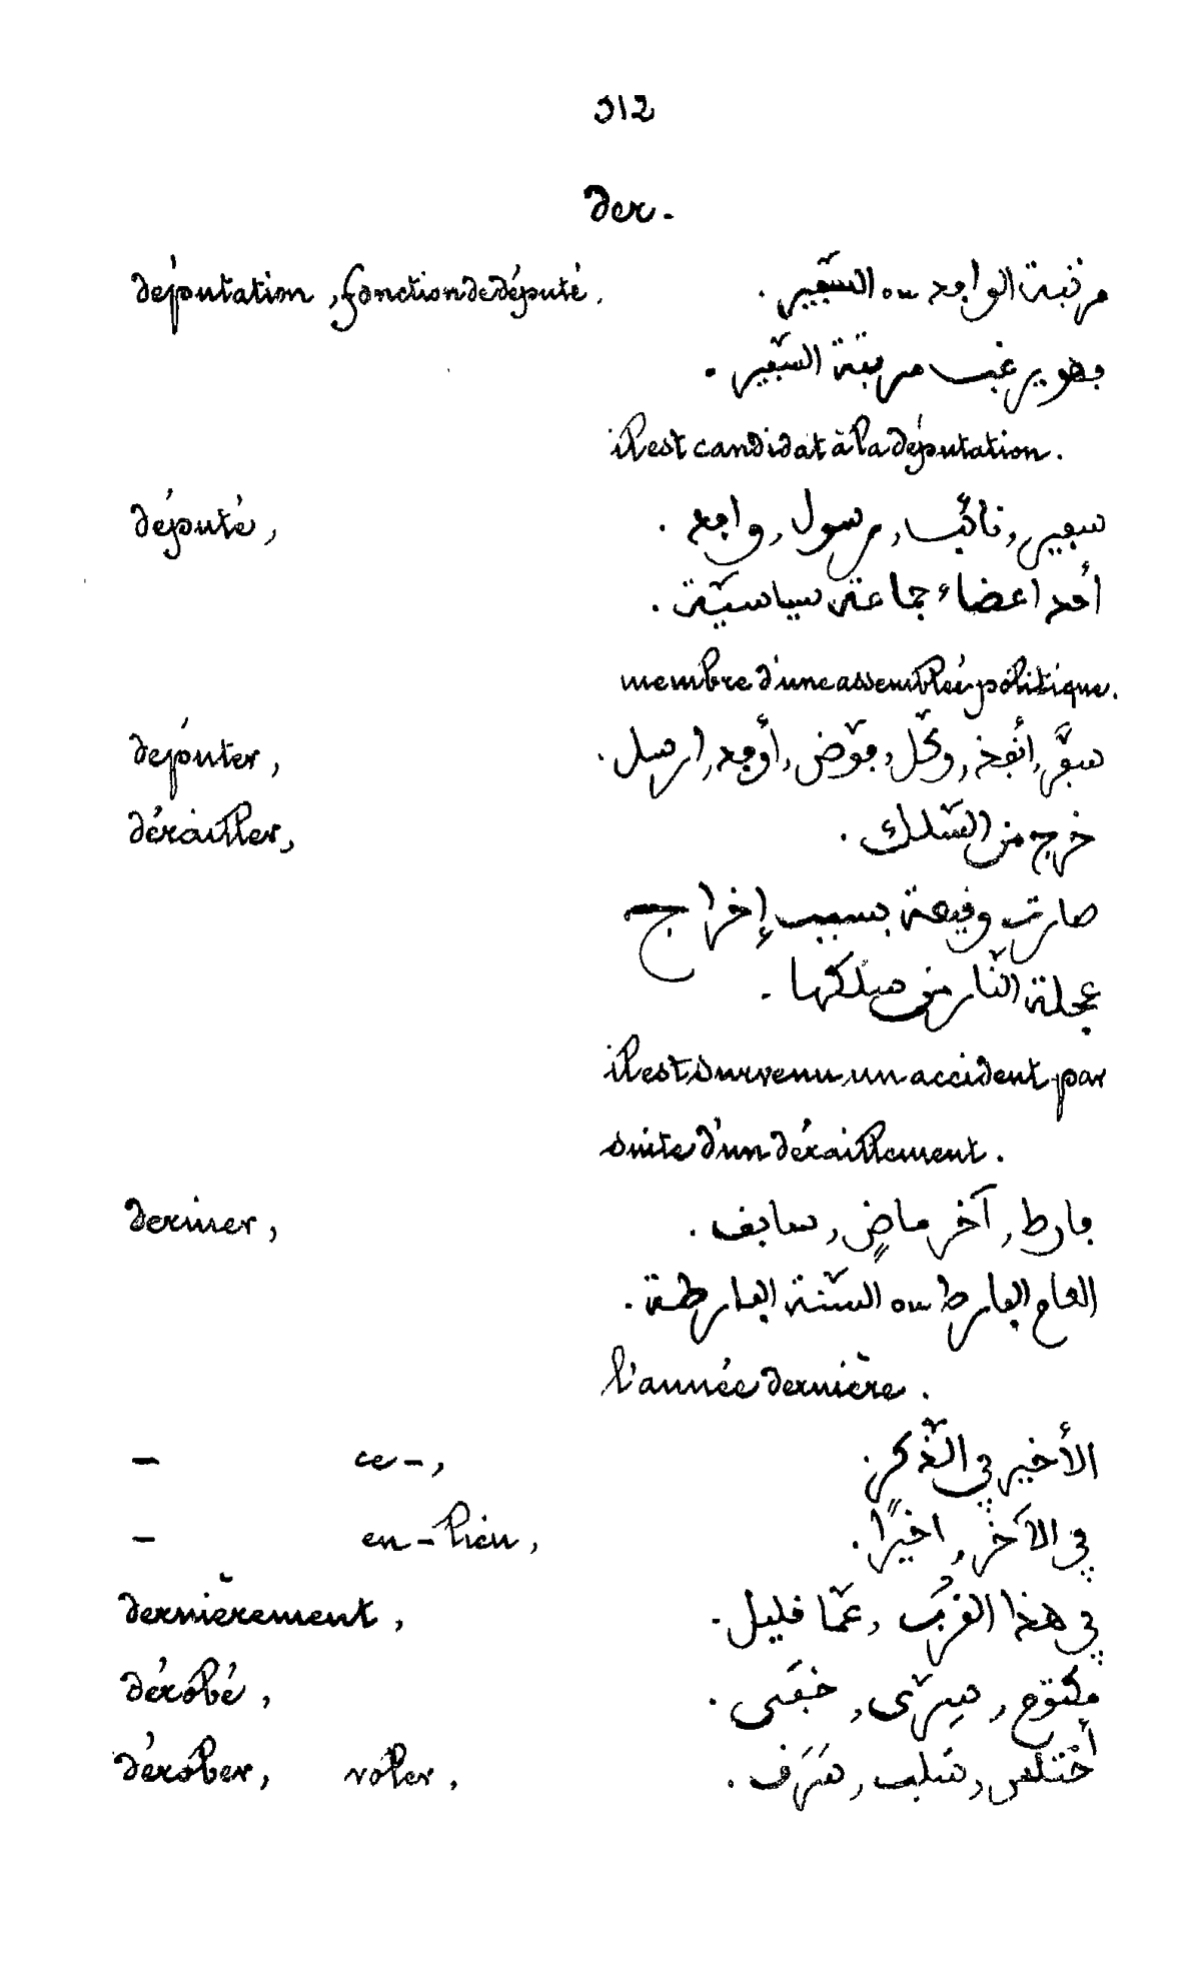 312
der.
députation, fonction de député. مرتبة الوافد ou السّفير.
فهو يرغب مرتبة السّفير.
il est candidat à la députation.
député, سفير, نائب, رسول, وافد.
أحد اعضاء جماعة سياسيّة.
membre d'une assemblée politique.
députer, سفّر, أنفذ, وكّل, فوّض, أوفد, ارسل.
dérailler, خرج من السّلك.
صارت وقيعة بسبب إخراج
عجلة النّار من سلكها.
il est survenu un accident par
suite d'un déraillement.
dernier, فارط, آخر ماضٍ, سابق.
العام الفارط ou السّنة الفارطة.
l'année dernière.
— ce –, الأخير في الذّكر.
— en – lieu, في الآخر, اخيرًا.
dernièrement, في هذا القرب, عمّا قليل.
dérobé, مكتوم, سرّى, خفى.
dérober, voler, أختلس, سلب, سَرَق.